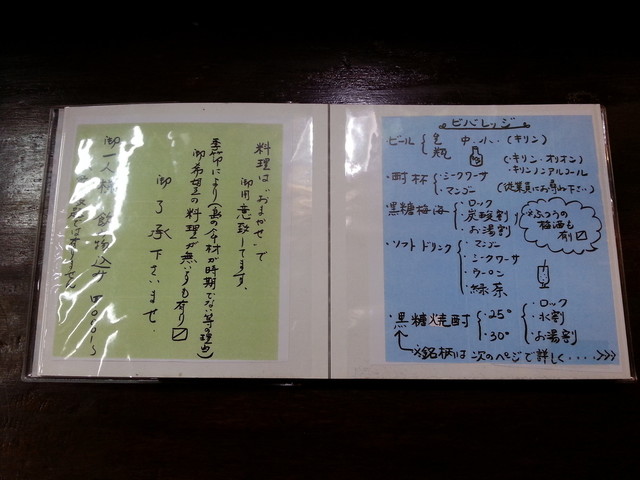 料理は"おまかせ"で
御用意致してます、
季節により(島の食材が時期でない等の理由)
御希望の料理が無い時も有り〼
御了承下さいませ.
御一人様 飲物込み 4000円〜
ビバレッジ
・ビール 生 中.小. (キリン)
瓶 (・キリン・オリオン)
・キリンノンアルコール
・酎杯 ・シークワーサ
・マンゴー (従業員にお尋ね下さい)
・黒糖梅酒 ・ロック
・炭酸割
・お湯割
※ふつうの
梅酒も
有り〼
・ソフトドリンク ・マンゴー
・シークワーサ
・ウーロン
・緑茶
・黒糖焼酎 ・25°
・30°
・ロック
・水割
・お湯割
※銘柄は次のページで詳しく・・・・>>>